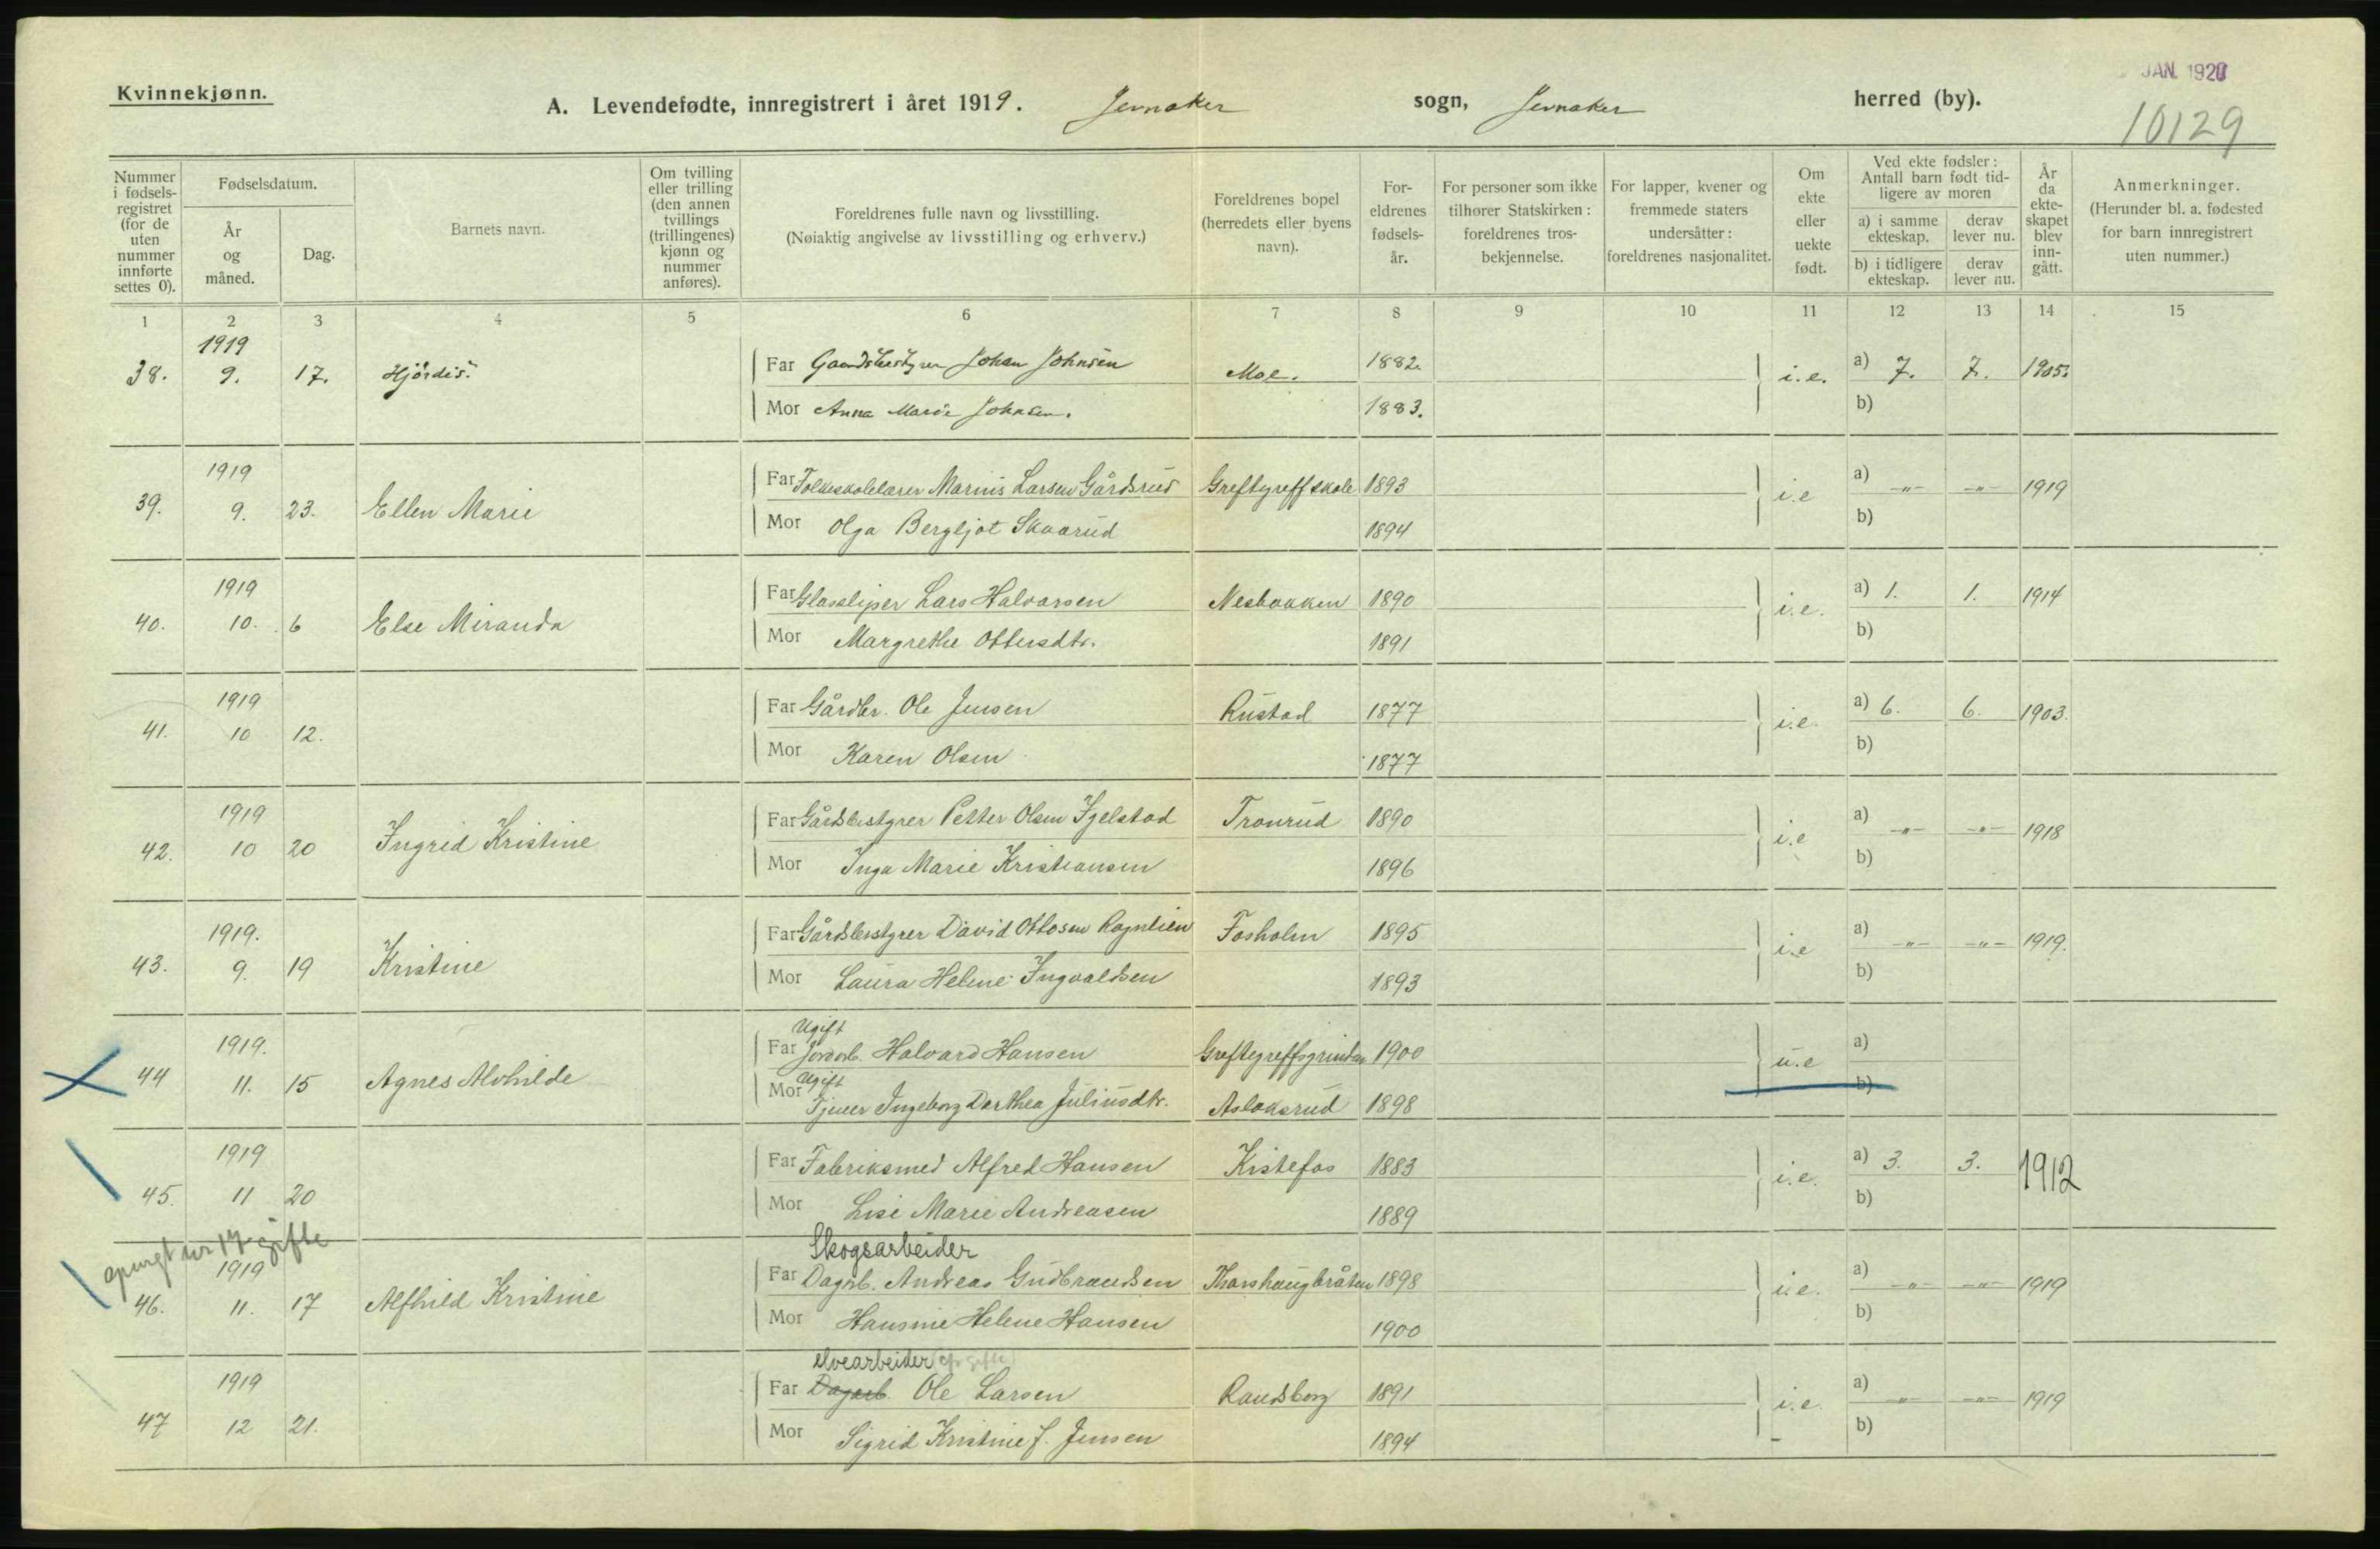 JAN. 1920
Kvinnekjønn.
A. Levendefødte, innregistrert i året 1919. Jevnaker sogn, Jevnaker herred (by).
10129
Nummer i fødsels-registret (for de uten nummer innførte settes 0).
Fødselsdatum.
År og måned.
Dag.
Barnets navn.
Om tvilling eller trilling (den annen tvillings (trillingenes) kjønn og nummer anføres).
Foreldrenes fulle navn og livsstilling.
(Nøiaktig angivelse av livsstilling og erhverv.)
Foreldrenes bopel (herredets eller byens navn).
For-eldrenes fødsels-år.
For personer som ikke tilhører Statskirken: foreldrenes tros-bekjennelse.
For lapper, kvener og fremmede staters undersåtter: foreldrenes nasjonalitet.
Om ekte eller uekte født.
Ved ekte fødsler: Antall barn født tid-ligere av moren
a) i samme ekteskap.
derav lever nu.
b) i tidligere ekteskap.
derav lever nu.
År da ekte-skapet blev inn-gått.
Anmerkninger.
(Herunder bl. a. fødested for barn innregistrert uten nummer.)
1 2 3 4 5 6 7 8 9 10 11 12 13 14 15
1919
38. 9. 17. Hjördis. Far Gaardsbestyrer Johan Johnsen Moe. 1882. i.e. a) 7. 7. 1905.
Mor Anna Marie Johnsen. 1883. b)
1919
39. 9. 23. Ellen Marie Far Folkeskolelærer Marius Larsen Gårdsrud Greftegreff skole 1893 i.e a) -"- -"- 1919
Mor Olga Bergljot Skaarud 1894 b)
1919
40. 10. 6 Else Miranda Far Glassliper Lars Halvorsen Nesbakken 1890 i.e. a) 1. 1. 1914
Mor Margrethe Ottersdtr. 1891 b)
1919
41. 10 12. Far Gårdbr. Ole Jensen Rustad 1877 i.e. a) 6. 6. 1903.
Mor Karen Olsen 1877 b)
1919
42. 10 20 Ingrid Kristine Far Gårdsbestyrer Petter Olsen Igelstad Tronrud 1890 i.e a) -"- -"- 1918
Mor Inga Marie Kristiansen 1896 b)
1919.
43. 9. 19 Kristine Far Gårdsbestyrer David Ottosen Rognlien Fosholm 1895 i.e a) -"- -"- 1919.
Mor Laura Helene Ingvaldsen 1893 b)
1919. Ugift
44 11. 15 Agnes Alvhilde Far Jordarb. Halvard Hansen Greftegreffsgrinden 1900 u.e a)
Ugift
Mor Tjener Ingeborg Dorthea Juliusdtr. Aslaksrud 1898 b)
1919
45. 11 20 Far Fabriksmed Alfred Hansen Kistefos 1883 i.e. a) 3. 3. 1912
Mor Lise Marie Andreasen 1889 b)
spurgt nr 17 gifte
Skogsarbeider
1919
46. 11. 17 Alfhild Kristine Far Dagarb. Andreas Gudbrandsen Thorshaugbråten 1898 i.e. a) -"- -"- 1919
Mor Hansine Helene Hansen 1900 b)
elvearbeider
1919
47 12 21. Far Dagarb. Ole Larsen Randsborg 1891 i.e. a) -"- -"- 1919
Mor Sigrid Kristine f. Jensen 1894 b)